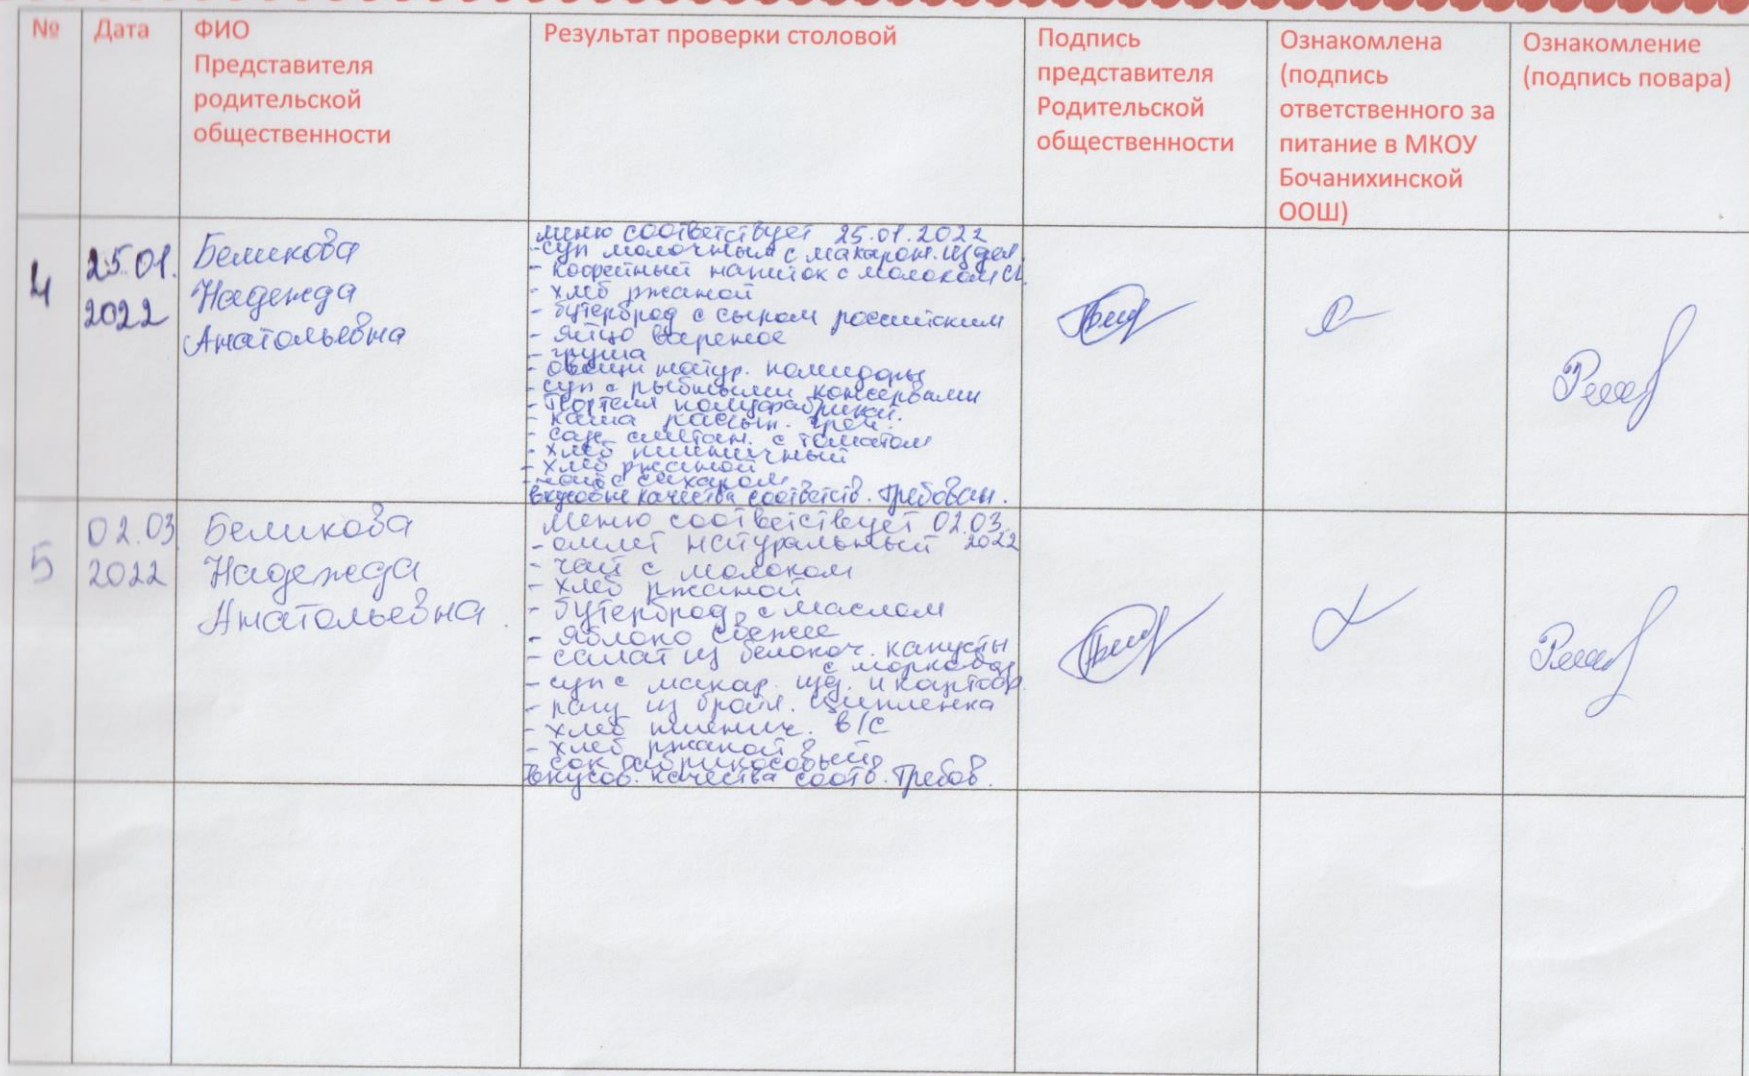 №
Дата
ФИО
Представителя
родительской
общественности
Результат проверки столовой
Подпись
представителя
Родительской
общественности
Ознакомлена
(подпись
ответственного за
питание в МКОУ
Бочанихинской
ООШ)
Ознакомление
(подпись повара)
4
25.01.
2022
Беликова
Надежда
Анатольевна
меню соответствует 25.01.2022
- суп молочный с макарон. издел.
- кофейный напиток с молоком
- хлеб ржаной
- бутерброд с сыром российским
- яйцо вареное
- груша
- овощи натур. помидоры
- суп с рыбными консервами
- полуфабрикат.
- каша рассып. греч.
- соус сметан. с томатом
- хлеб пшеничный
- хлеб ржаной
- чай с сахаром
вкусовые качества соответств. требован.
5
02.03
2022
Беликова
Надежда
Анатольевна.
Меню соответствует 02.03.
2022
- омлет натуральный
- чай с молоком
- хлеб ржаной
- бутерброд с маслом
- яблоко свежее
- салат из белокоч. капусты
с морковью
- суп с макар. изд. и картоф.
- рагу из бройл. цыпленка
- хлеб пшенич. в/с
- хлеб ржаной
- сок абрикосовый
вкусов. качества соотв. требов.